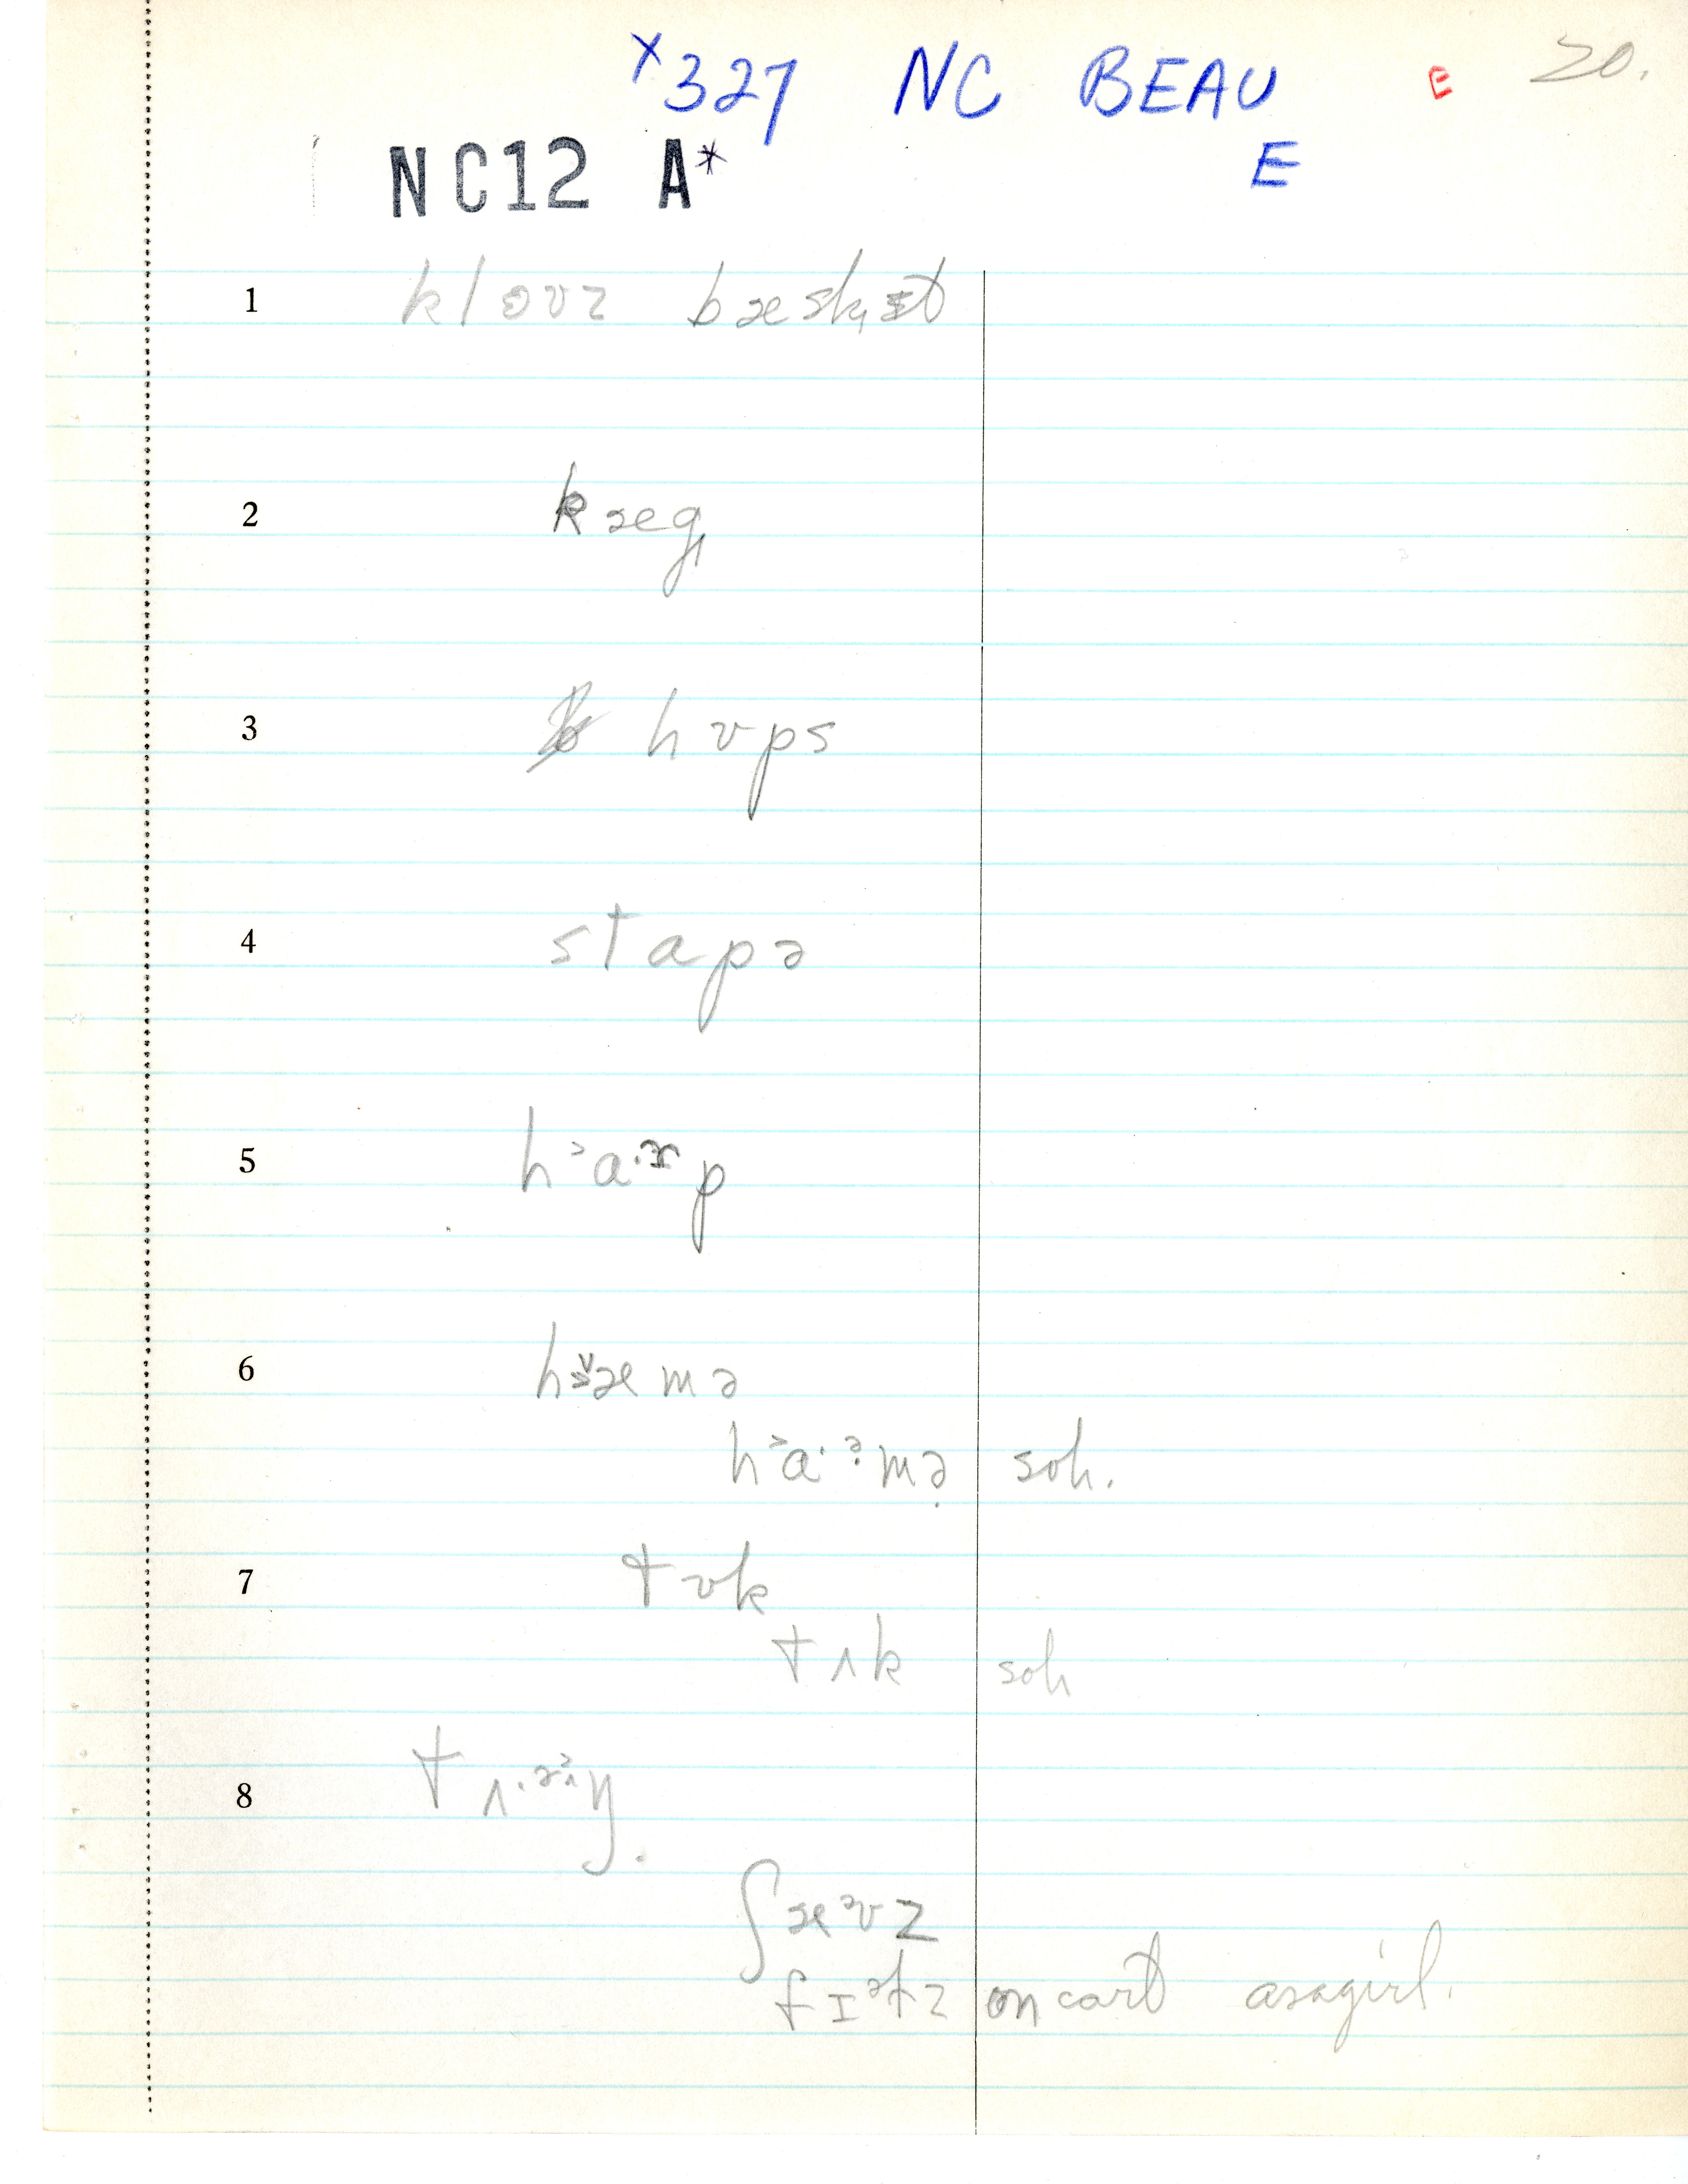 x327 NC BEAU E 20.
NC12 A* E
1 klɵʊz bæsk̟ɪt
2 kæg̟
3 hʊps
4 stɑpə
5 h˃a·ɚp
6 hæmə
h˃a·ə̣mə̣ soh.
7 tʊk
tʌk soh
8 tʌ·ə˃ʌŋ.
ʃæᵊvz
fɪᵊɫz on cart as a girl.